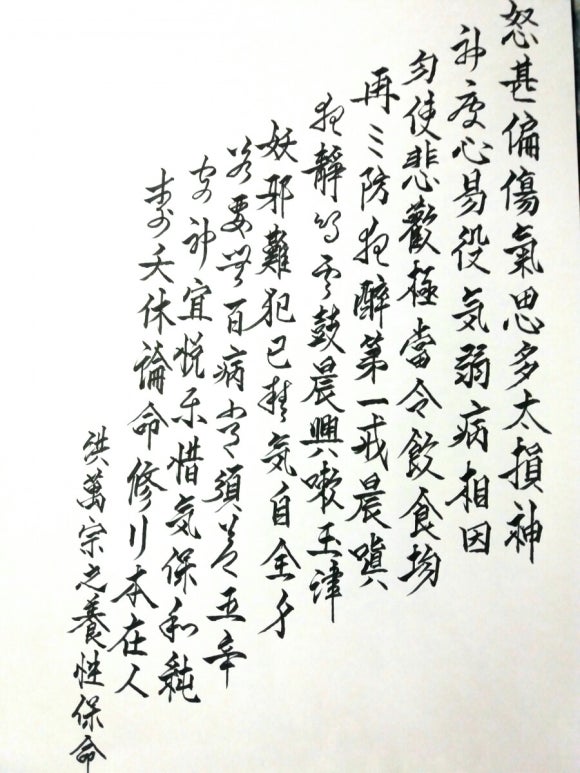 怒甚偏傷氣思多太損神
神疲心易役気弱病相因
勿使悲歡極當令飲食均
再三防夜醉第一戒晨嗔
夜靜鳴雲鼓晨興嗽玉津
妖邪難犯己精気自全身
若要無百病常須節五辛
安神宜悅樂惜気保和純
壽夭休論命修行本在人
洪萬宗之養性保命